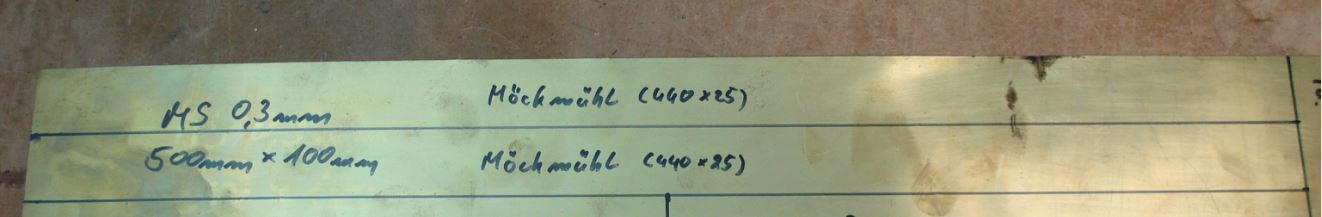 MS 0,3mm
Möckmühl (440×25)
500mm × 100mm
Möckmühl (440×25)